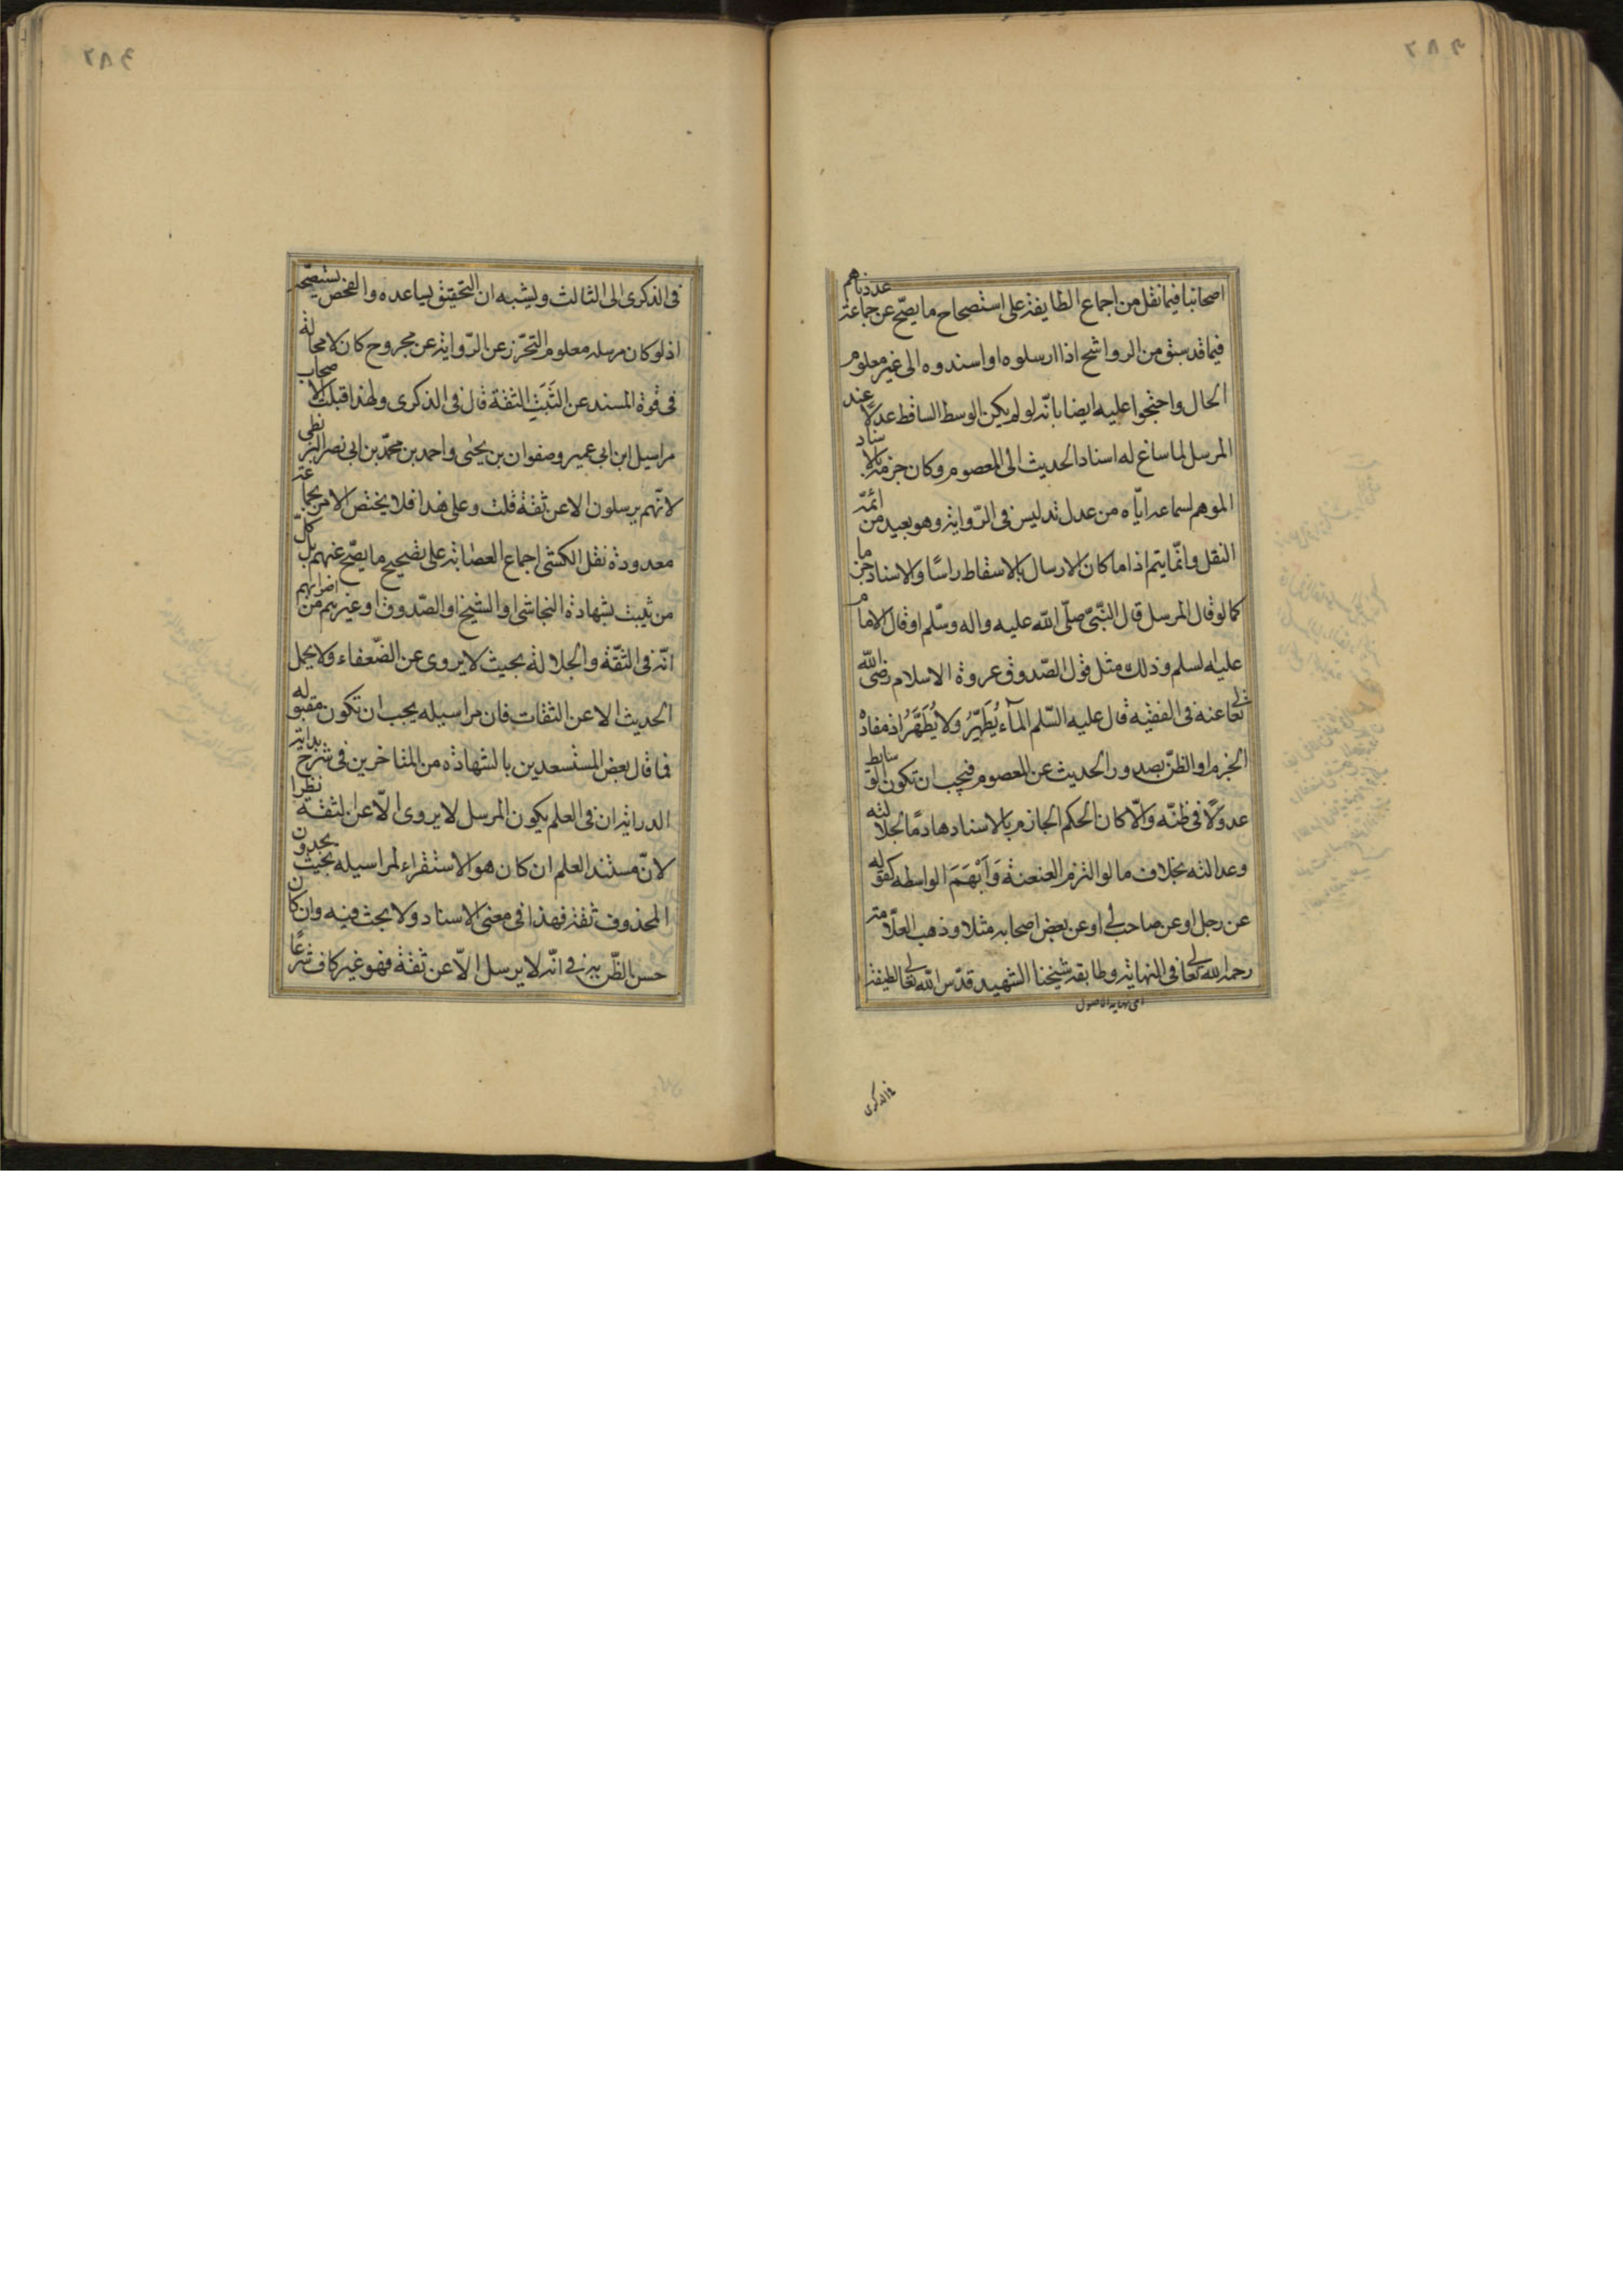 اصحابنا فيما نقل من اجماع الطايفة على استصحاح ما يصح عن جماعة عددناهم
فيما قد سبق من الرواشح اذا ارسلوه او اسندوه الى غير معلوم
الحال واحتجوا عليه ايضا بانّه لو لم يكن الوسط الساقط عدلًا عند
المرسل لما ساغ له اسناد الحديث الى المعصوم وكان جزمه بالاسناد
الموهم لسماعه ايّاه من عدل تدليس فى الرّواية وهو بعيد من ائمّة
النقل وانّما يتم اذا ما كان الارسال بالاسقاط راسًا والاسناد جزما
كما لو قال المرسل قال النّبىّ صلّى الله عليه واله وسّلم او قال الامام
عليه لسلم وذلك مثل قول الصّدوق عروة الاسلام رضى الله
تعالى عنه فى الفقيه قال عليه السّلم المآء يُطَهِّرُ ولا يُطَهَّرُ اذ مفاده
الجزم او الظنّ بصدور الحديث عن المعصوم فيجب ان تكون الوسايط
عدولًا فى ظنّه والّا كان الحكم الجازم بالاسناد هادمًا لجلالته
وعدالته بخلاف ما لو التزم العنعنة وَاَبْهَمَ الواسطه كقوله
عن رجل او عن صاحب لى او عن بعض اصحابه مثلا وذهب العلّامة
رحمه الله تعالى فى النهاية وطابقه شيخنا الشهيد قدّس الله تعالى لطيفته
اى نهاية الاصول
فى الذكرى
فى الذكرى الى الثالث ويشبه ان التحقيق يساعده والفحص يستصحّه
اذ لو كان مرسله معلوم التحرّز عن الرّواية عن مجروح كان لا محالة
فى قوة المسند عن الثَبَتِ الثقة قال فى الذكرى ولهذا قبلت الاصحاب
مراسيل ابن ابى عمير وصفوان بن يحيى واحمد بن محمّد بن ابى نصر البزنطى
لانّهم يرسلون الا عن ثقة قلت وعلى هذا فلا يختص الامر بجماعة
معدودة نقل الكشى اجماع العصابة على تصحيح ما يصّح عنهم بل كلّ
من ثبت بشهادة النجاشى او الشيخ او الصّدوق او غيرهم من اضرابهم
انّه فى الثقّة والجلالة بحيث لا يروى عن الضّعفاء ولا يحمل
الحديث الا عن الثقات فان مراسيله يجب ان تكون مقبوله
فما قال بعض المستسعدين بالشهادة من المتاخرين فى شرح بداية
الدراية ان فى العلم بكون المرسل لا يروى الّا عن لثقة نظرا
لانّ مستند العلم ان كان هو الاستقراء لمراسيله بحيث يجدون
المحذوف ثقة فهذا فى معنى الاسناد ولا بحث فيه وان كان
حسن الظّن به فى انّه لا يرسل الّا عن ثقة فهو غير كاف شرعًا